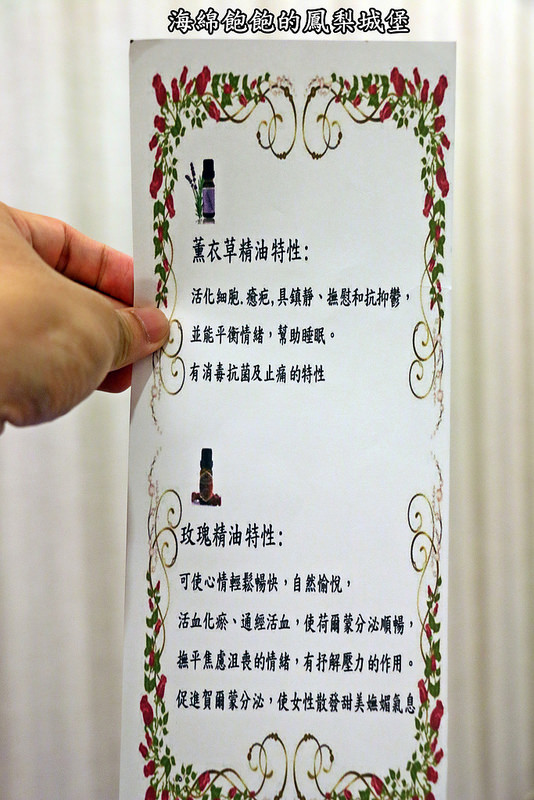 海綿飽飽的鳳梨城堡
薰衣草精油特性:
活化細胞.癒疤,具鎮靜、撫慰和抗抑鬱,
並能平衡情緒,幫助睡眠。
有消毒抗菌及止痛的特性
玫瑰精油特性:
可使心情輕鬆暢快,自然愉悅,
活血化瘀、通經活血,使荷爾蒙分泌順暢,
撫平焦慮沮喪的情緒,有抒解壓力的作用。
促進賀爾蒙分泌,使女性散發甜美嫵媚氣息